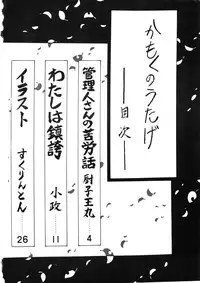 かもくのうたげ
目次
管理人さんの苦労話 尉子王丸 4
わたしは鎮誇 小政 11
イラスト すくりんとん 26